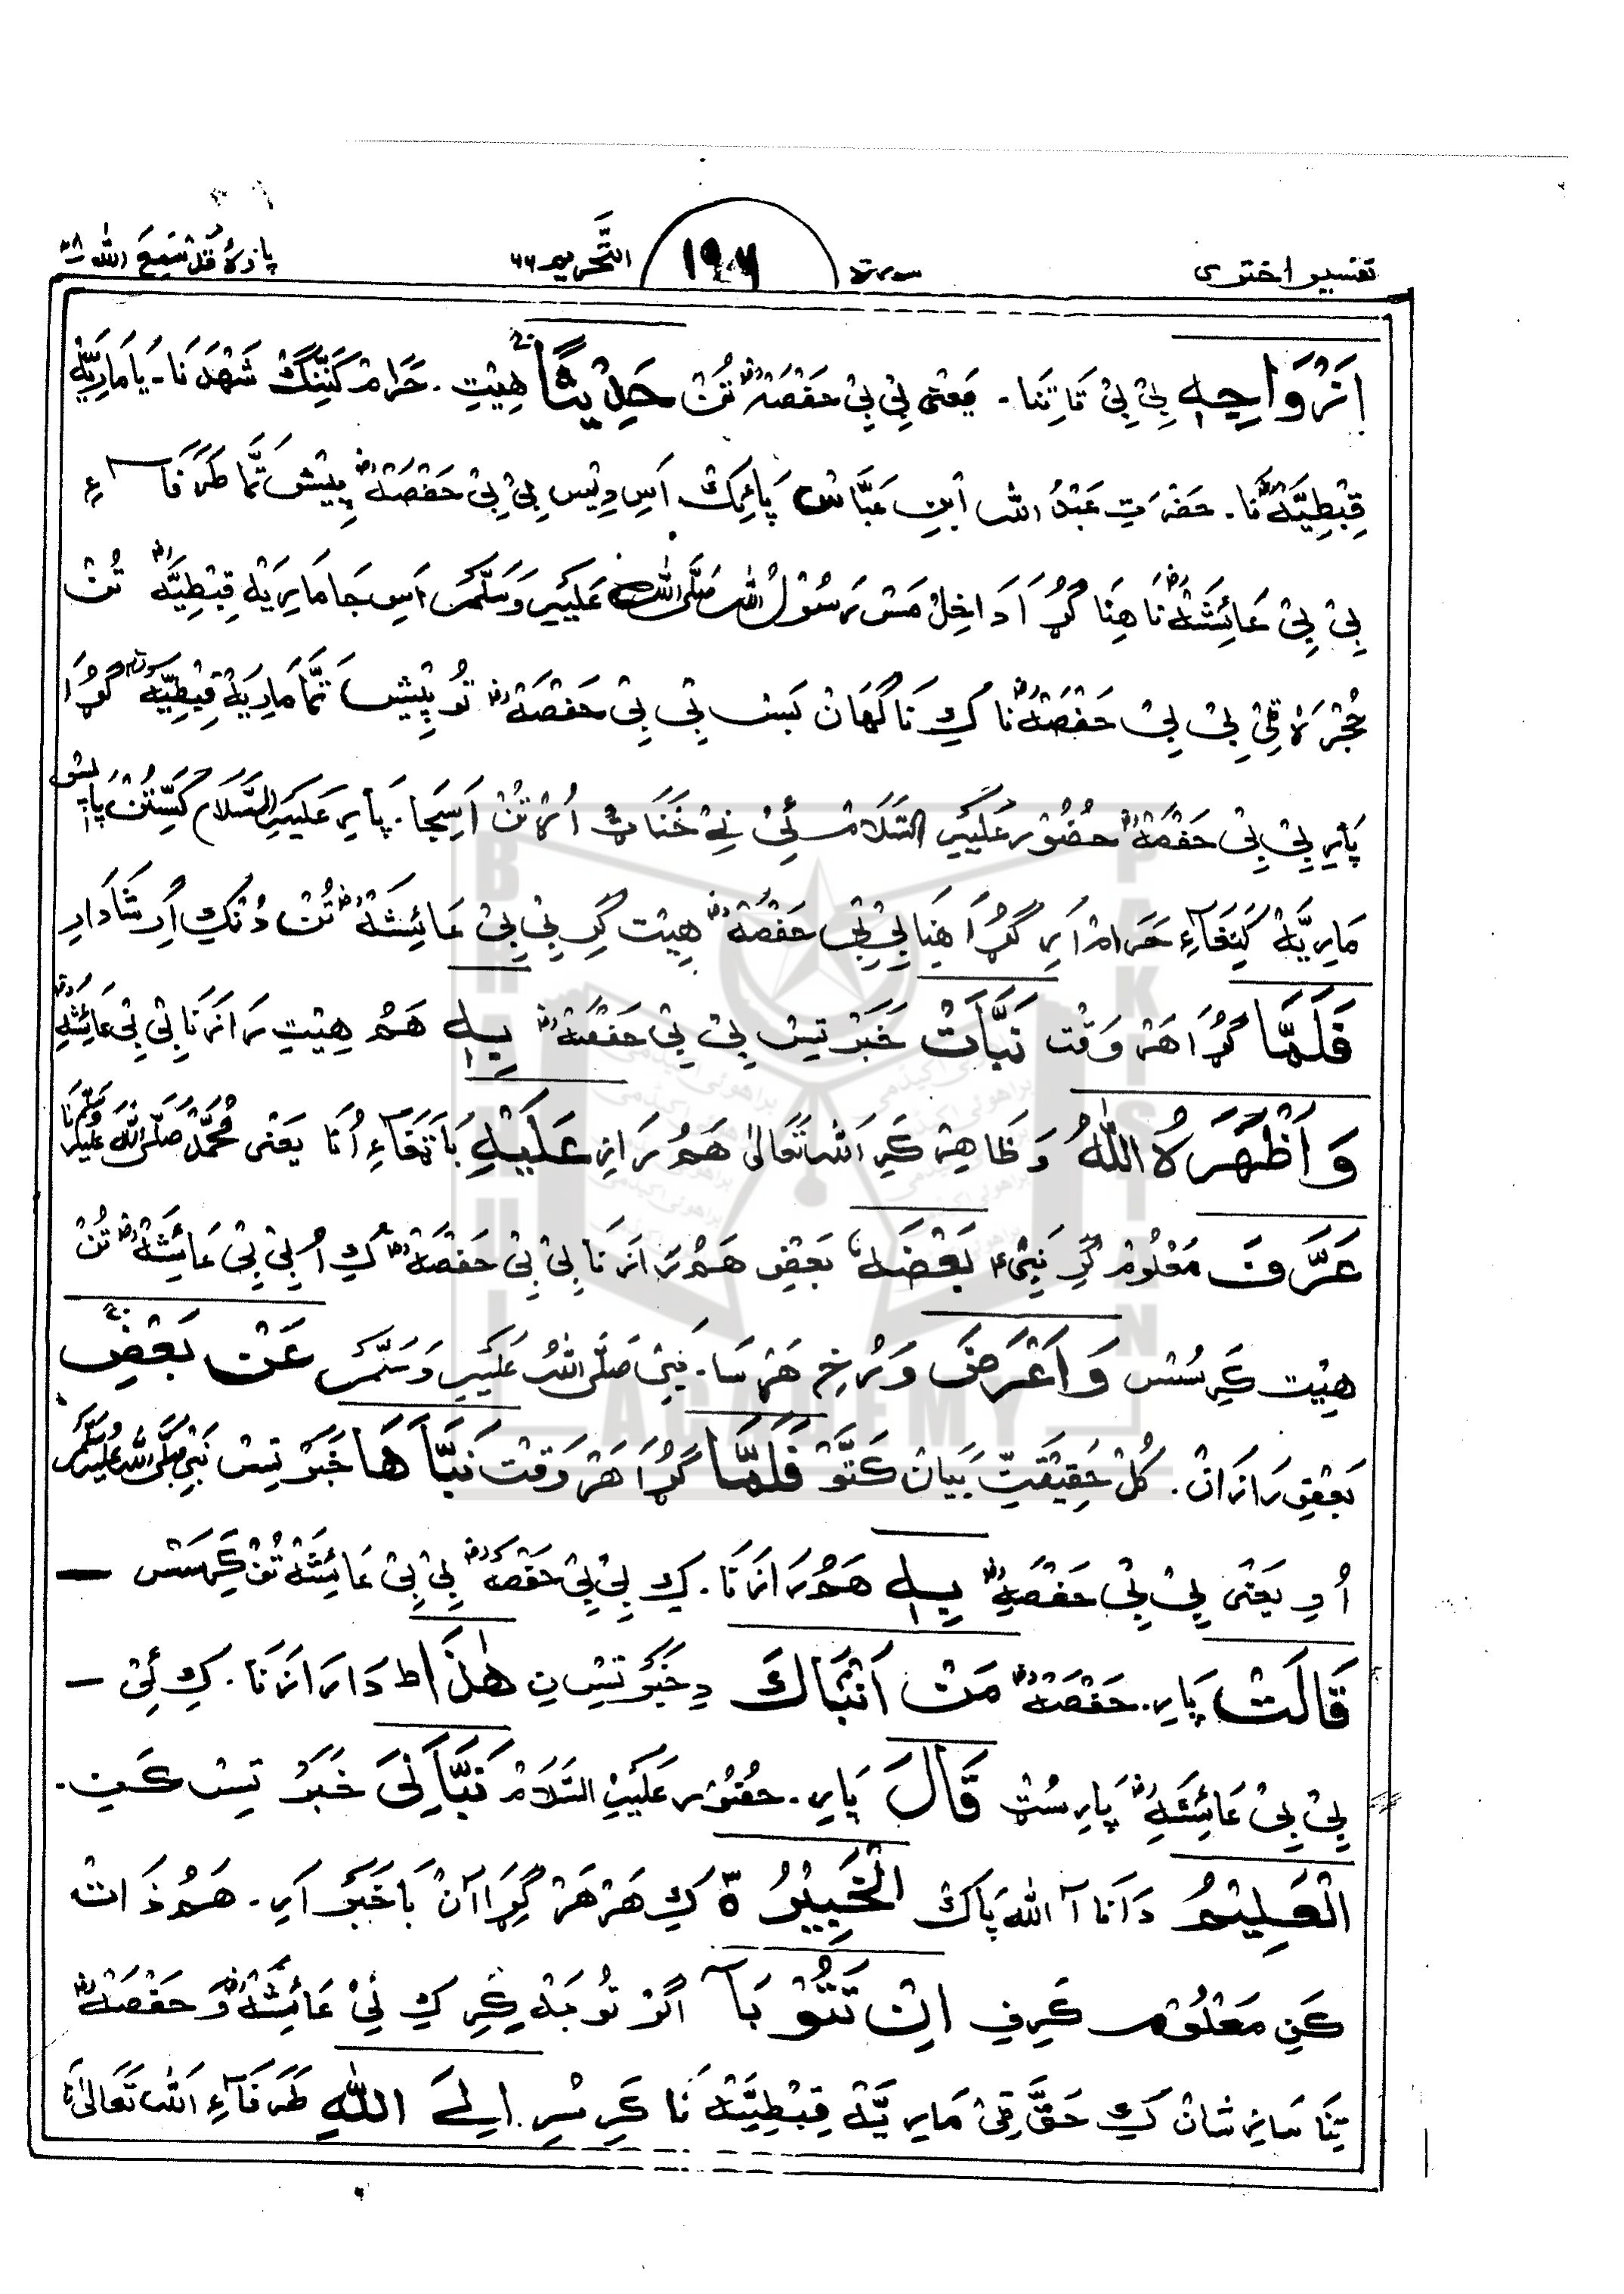 تفسیر اختری سورۃ ۱۹۰۷ التَّحْرِیم ۶۶ پارَہ قَدْ سَمِعَ اللہ ۲۸
اَزْوَاجِہٖ بِیْ بِیْ تَاتِنَا۔ یَعْنٰی بِیْ بِیْ حَفْصَہْ تُنْ حَدِیْثًا ہِیْتِ۔ حَرَامْ کَنِّنْگ شَہْدَ نَا۔ یَا مَارِیَّہْ
قِبْطِیَّہْ نَا۔ حَضْرَتِ عَبْدُ اللہ اَبْنِ عَبَّاسْ پَائِکْ اَسِ دِیْسِ بِیْ بِیْ حَفْصَہْ پِیْشْ تَمَّا طَرَفَاءِ
بِیْ بِیْ عَائِشَہْ نَا ہِنَا گُڑَا دَاخِلْ مَسْ رَسُوْلُ اللہ صَلَّی اللہ عَلَیْہِ وَسَلَّمَ اَسِ جَا مَارِیَہْ قِبْطِیَّہْ تُنْ
حُجْرَہْ قِیْ بِیْ بِیْ حَفْصَہْ نَا کِ نَاگَہَانْ بَسْ بِیْ بِیْ حَفْصَہْ تُو پِیْشْ تَمَّا مَارِیَہْ قِبْطِیَّہْ گُڑَا
پَارِ بِیْ بِیْ حَفْصَہْ حُضُوْر عَلَیْہِ السَّلَامْ نِیْ خَنَاثْ اُرَہْ تُنْ اَسِجَا۔ پَارِ عَلَیْہِ السَّلَام کَسِّتُنْ پَا
مَارِیَّہْ کَنِغَاءِ حَرَامْ اَرِ گُڑَا ہِنَا بِیْ بِیْ حَفْصَہْ ہِیْت کَرِ بِیْ بِیْ عَائِشَہْ تُنْ دُنْکِ اِرْشَادَارِ
فَلَمَّا گُڑَا ہَرْ وَقْت نَبَّأَتْ خَبَرْ تِسْ بِیْ بِیْ حَفْصَہْ بِہٖ ہَمْ ہِیْتِ رَازَنَا بِیْ بِیْ عَائِشَہِ
وَ اَظْہَرَہُ اللّٰہُ وَ ظَاہِرْ کَرِ اَللہ تَعَالٰی ہَمُ رَازِ عَلَیْہِ بَاتْغَاءِ اُنَا یَعْنٰی مُحَمَّدْ صَلَّی اللہ عَلَیْہِ وَسَلَّمْ نَا
عَرَّفَ مَعْلُوْم کَرِ نَبِیْ بَعْضَہٗ بَعْضِ ہَمُ رَازَنَا بِیْ بِیْ حَفْصَہْ کِ اُ بِیْ بِیْ عَائِشَہْ تُنْ
ہِیْت کَرِسُسْ وَ اَعْرَضَ وَ رُخِ ہَرْسَا۔ نَبِیْ صَلَّی اللہُ عَلَیْہِ وَسَلَّمَ عَنْۢ بَعْضٍ
بَعْضِ رَازَانْ۔ کُلْ حَقِیْقَتِ بَیَانْ کَتَّوْ فَلَمَّا گُڑَا ہَرْ وَقْت نَبَّاَہَا خَبَرْ تِسْ نَبِیْ صَلَّی اللہ عَلَیْہِ وَسَلَّمْ
اُ دِ یَعْنٰی بِیْ بِیْ حَفْصَہِ بِہٖ ہَمُ رَازَنَا۔ کِ بِیْ بِیْ حَفْصَہ بِیْ بِیْ عَائِشَہْ تُنْ کَرِسَسْ ـ
قَالَتْ پَارِ۔ حَفْصَہْ مَنْ اَنْۢبَاَکَ دِ خَبَرْ تِسِ نِ ہٰذَا ؕ دَا رَازَنَا۔ کِ نِیْ ـ
بِیْ بِیْ عَائِشَہِ پَارِسُسْ قَالَ پَارِ۔ حُضُوْر عَلَیْہِ السَّلَامْ نَبَّاَنِیَ خَبَرْ تِسْ کَنِ۔
الْعَلِیْمُ دَانَا آ اللہ پَاکْ الْخَبِیْرُ ہ کِ ہَرْ ہَرْ گِڑَا آنْ بَاخَبَرْ اَرِ۔ ہَمُ ذَاتْ
کَنِ مَعْلُوْم کَرِفِ اِنْ تَتُوْبَآ اَگَرْ تُوبَہْ کَرِ کِ نِیْ عَائِشَہْ وَ حَفْصَہْ
تِنَا سَازِشَانْ کِ حَقَّ قِیْ مَارِیَّہْ قِبْطِیَّہْ نَا کَرِسْرِ۔ اِلَی اللّٰہِ طَرَفَاءِ اَللہ تَعَالٰی نَا